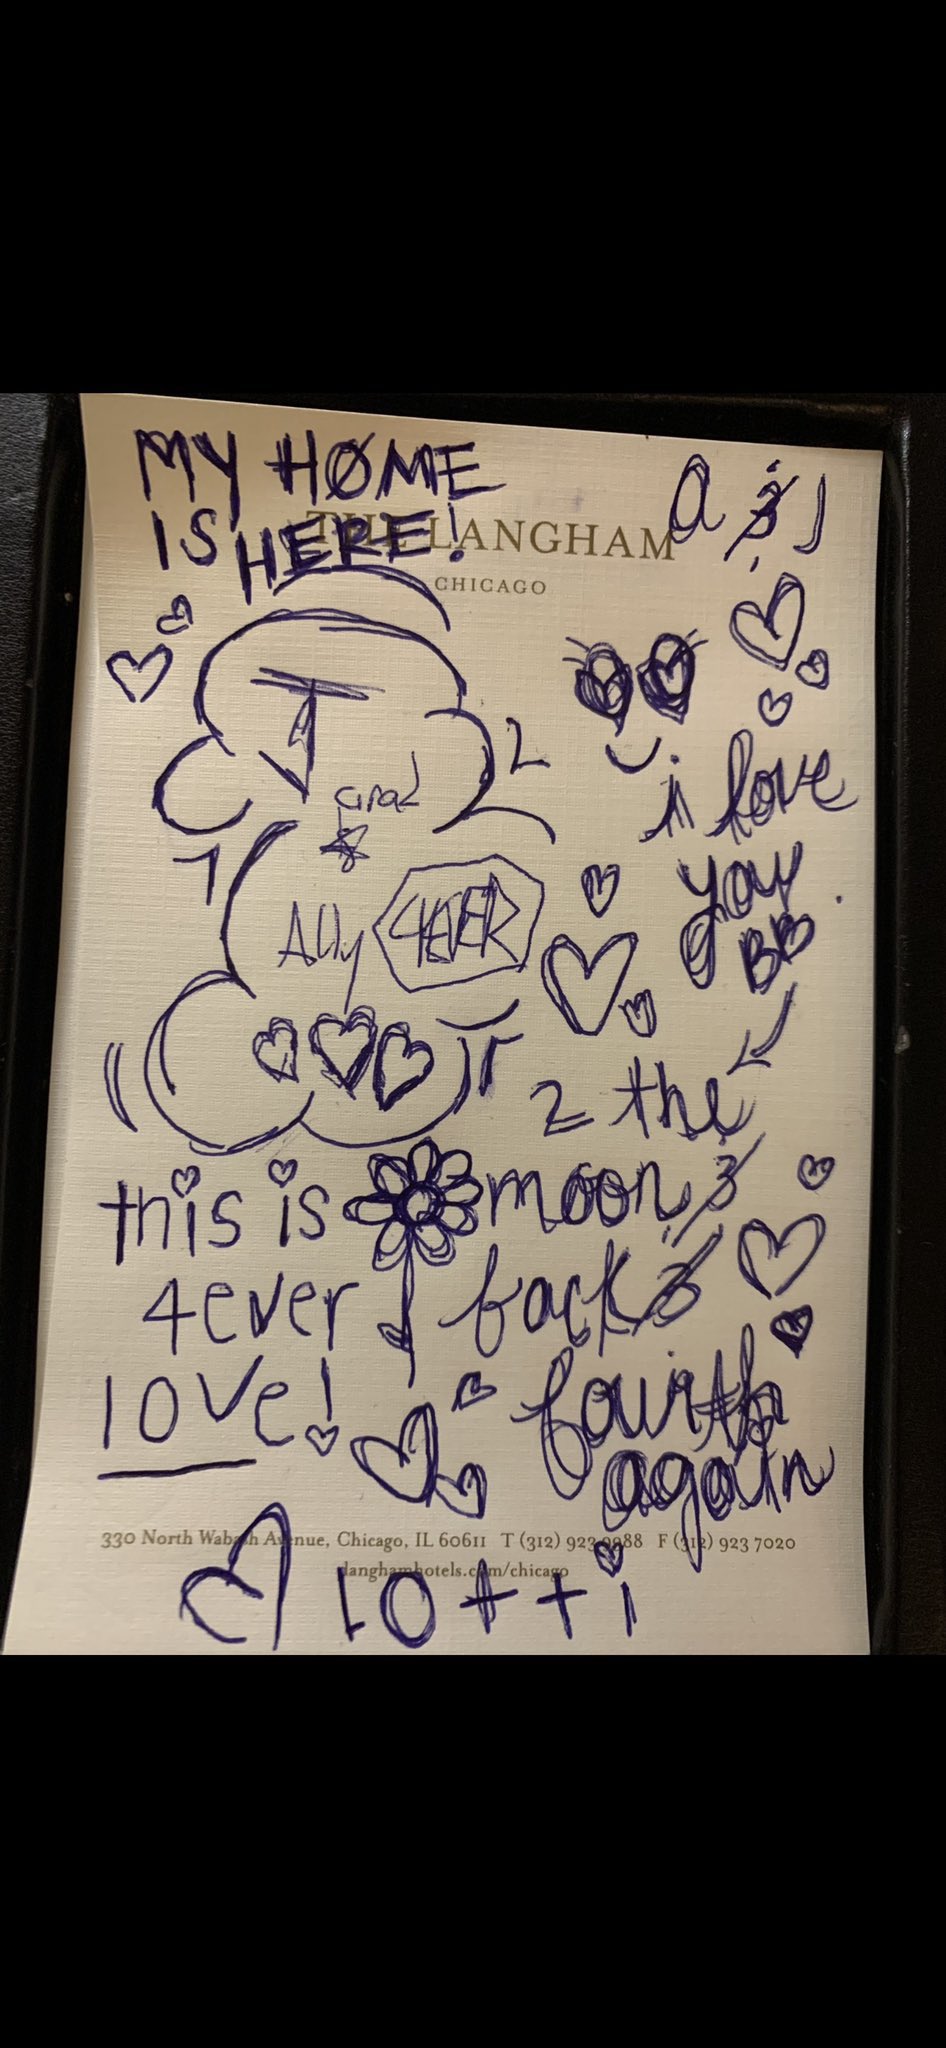 MY HOME
IS HERE!
THE LANGHAM
CHICAGO
a & J
J
and
Ally 4EVER
i love
you
BB
2 the
moon &
back &
fourth
again
this is
4ever
love!
330 North Wabash Avenue, Chicago, IL 60611 T (312) 923 9988 F (312) 923 7020
langhamhotels.com/chicago
lotti